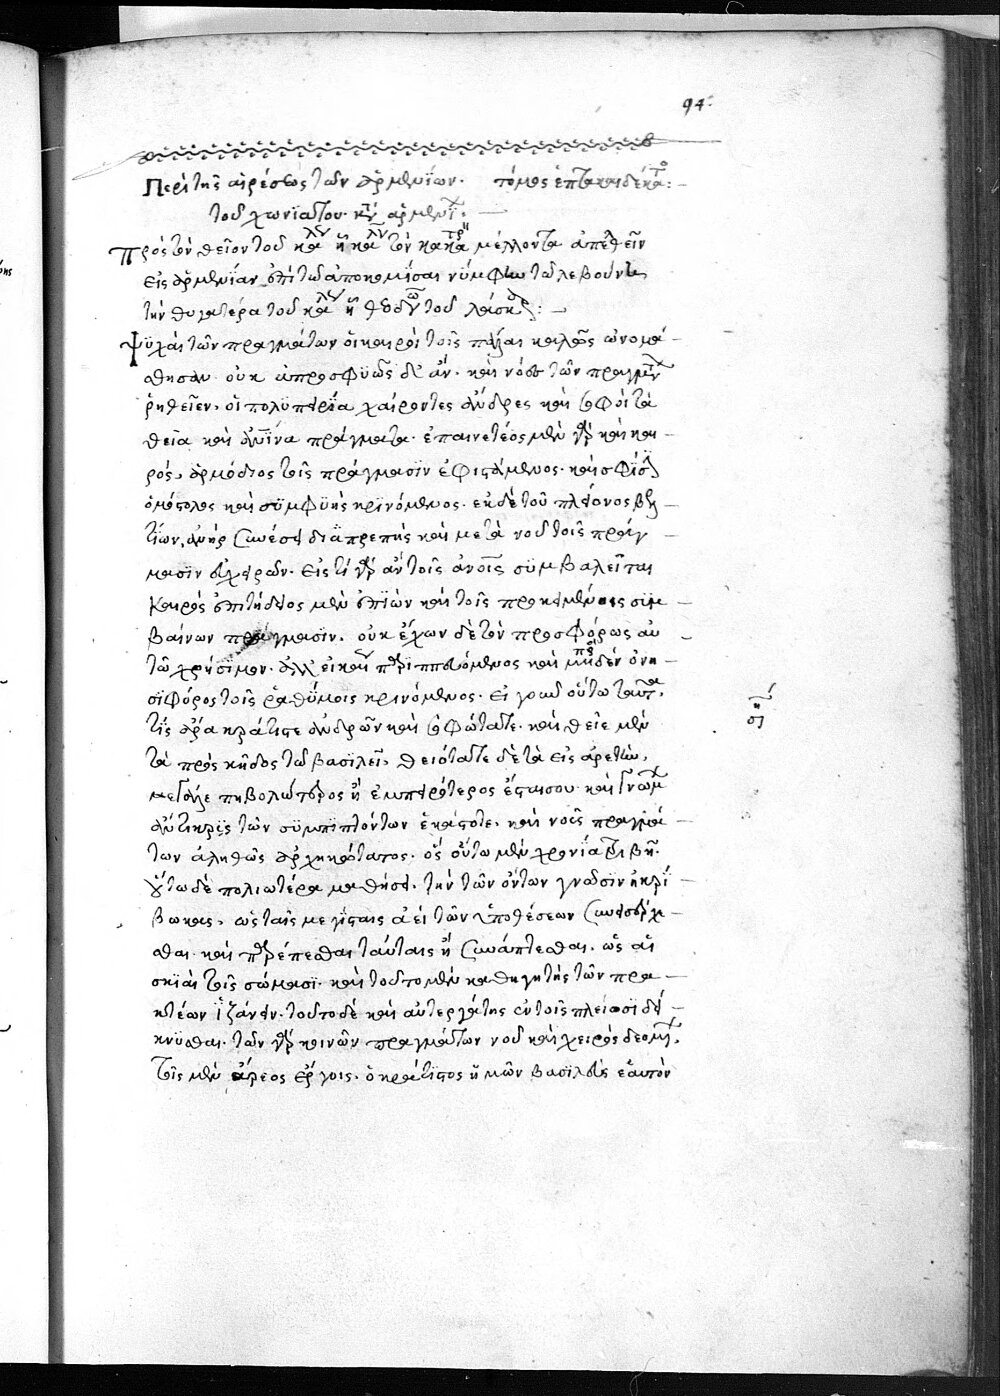 94
Περὶ τῆς αἱρέσεως τῶν ἀρμενίων. τόμος ἑπτακαιδέκατος:
τοῦ χωνιάτου. κατ ἀρμενί:
Πρὸς τὸν θεῖον τοῦ μέλλοντα ἀπελθεῖν
εἰς ἀρμενίαν ἐπὶ τῶ ἀποκομίσαι νύμφην τῶ λεβούνη
τὴν θυγατέρα τοῦ τοῦ λάσκαρ:
Ψυχαὶ τῶν πραγμάτων οἱ καιροὶ τοῖς πάλαι καλῶς ὠνομά
σθησαν. οὐκ ἀπροσφυῶς δ' ἂν. καὶ νόες τῶν πραγμάτων
ῥηθεῖεν. οἱ πολυπειρία χαίροντες ἄνδρες καὶ σοφοὶ τὰ
θεῖα καὶ ἀνθρώπινα πράγματα. ἐπαινετέος μὲν γὰρ καὶ και
ρός. ἁρμόδιος τοῖς πράγμασιν ἐφιστάμενος. καὶ σφίσιν
ὁμόστολος καὶ συμφυὴς κρινόμενος. ἐκ δὲ τοῦ πλείονος βελ
τίων, ἀνὴρ συνέσει διαπρεπὴς καὶ μετὰ νοῦ τοῖς πράγ
μασιν ἐγχειρῶν. εἰς τί γὰρ ἂν τοῖς ἀνοις συμβαλεῖται
καιρὸς ἐπιτήδειος μὲν ἐπιὼν καὶ τοῖς προκειμένοις συμ
βαίνων πράγμασιν. οὐκ ἔχων δὲ τὸν προσφόρως αὐ
τῶ χρήσιμον. ἀλλ' εἰκαῖ περιιπτάμενος καὶ μηδὲν ὀνη
σιφόρος τοῖς ῥαθύμοις κρινόμενος. εἰ γοῦν οὕτω ταῦτα,
τίς ἄρα κράτιστε ἀνδρῶν καὶ σοφώτατε. καὶ θεῖε μὲν
τὰ πρὸς κῆδος τῶ βασιλεῖ, θειότατε δὲ τὰ εἰς ἀρετήν,
μεγαλεπηβολώτερος ἢ ἐμπειρότερος ἔσται σου καὶ γνώμων
ἄντικρυς τῶν συμπιπτόντων ἑκάστοτε. καὶ νοῦς πραγμά
των ἀληθῶς ἀρχηκώτατος. ὃς οὕτω μὲν χρονία τριβῆ.
οὕτω δὲ πολιωτέρα μαθήσει. τὴν τῶν ὄντων γνῶσιν ἠκρί
βωκας, ὡς ταῖς μεγίσταις ἀεὶ τῶν ὑποθέσεων συνεισέρχε
σθαι. καὶ παρέπεσθαι ταύταις ἢ συνάπτεσθαι. ὡς αἱ
σκιαὶ τοῖς σώμασι. καὶ τοῦτο μὲν καθηγητὴς τῶν πρα
κτέων ἱζάνειν. τοῦτο δὲ καὶ αὐτεργάτης ἐν τοῖς πλείοσι δεί
κνυσθαι. τῶν γὰρ κοινῶν πραγμάτων νοῦ καὶ χειρὸς δεομένων.
τοῖς μὲν ἄρεος ἔργοις. ὁ κράτιστος ἡμῶν βασιλεὺς ἑαυτὸν